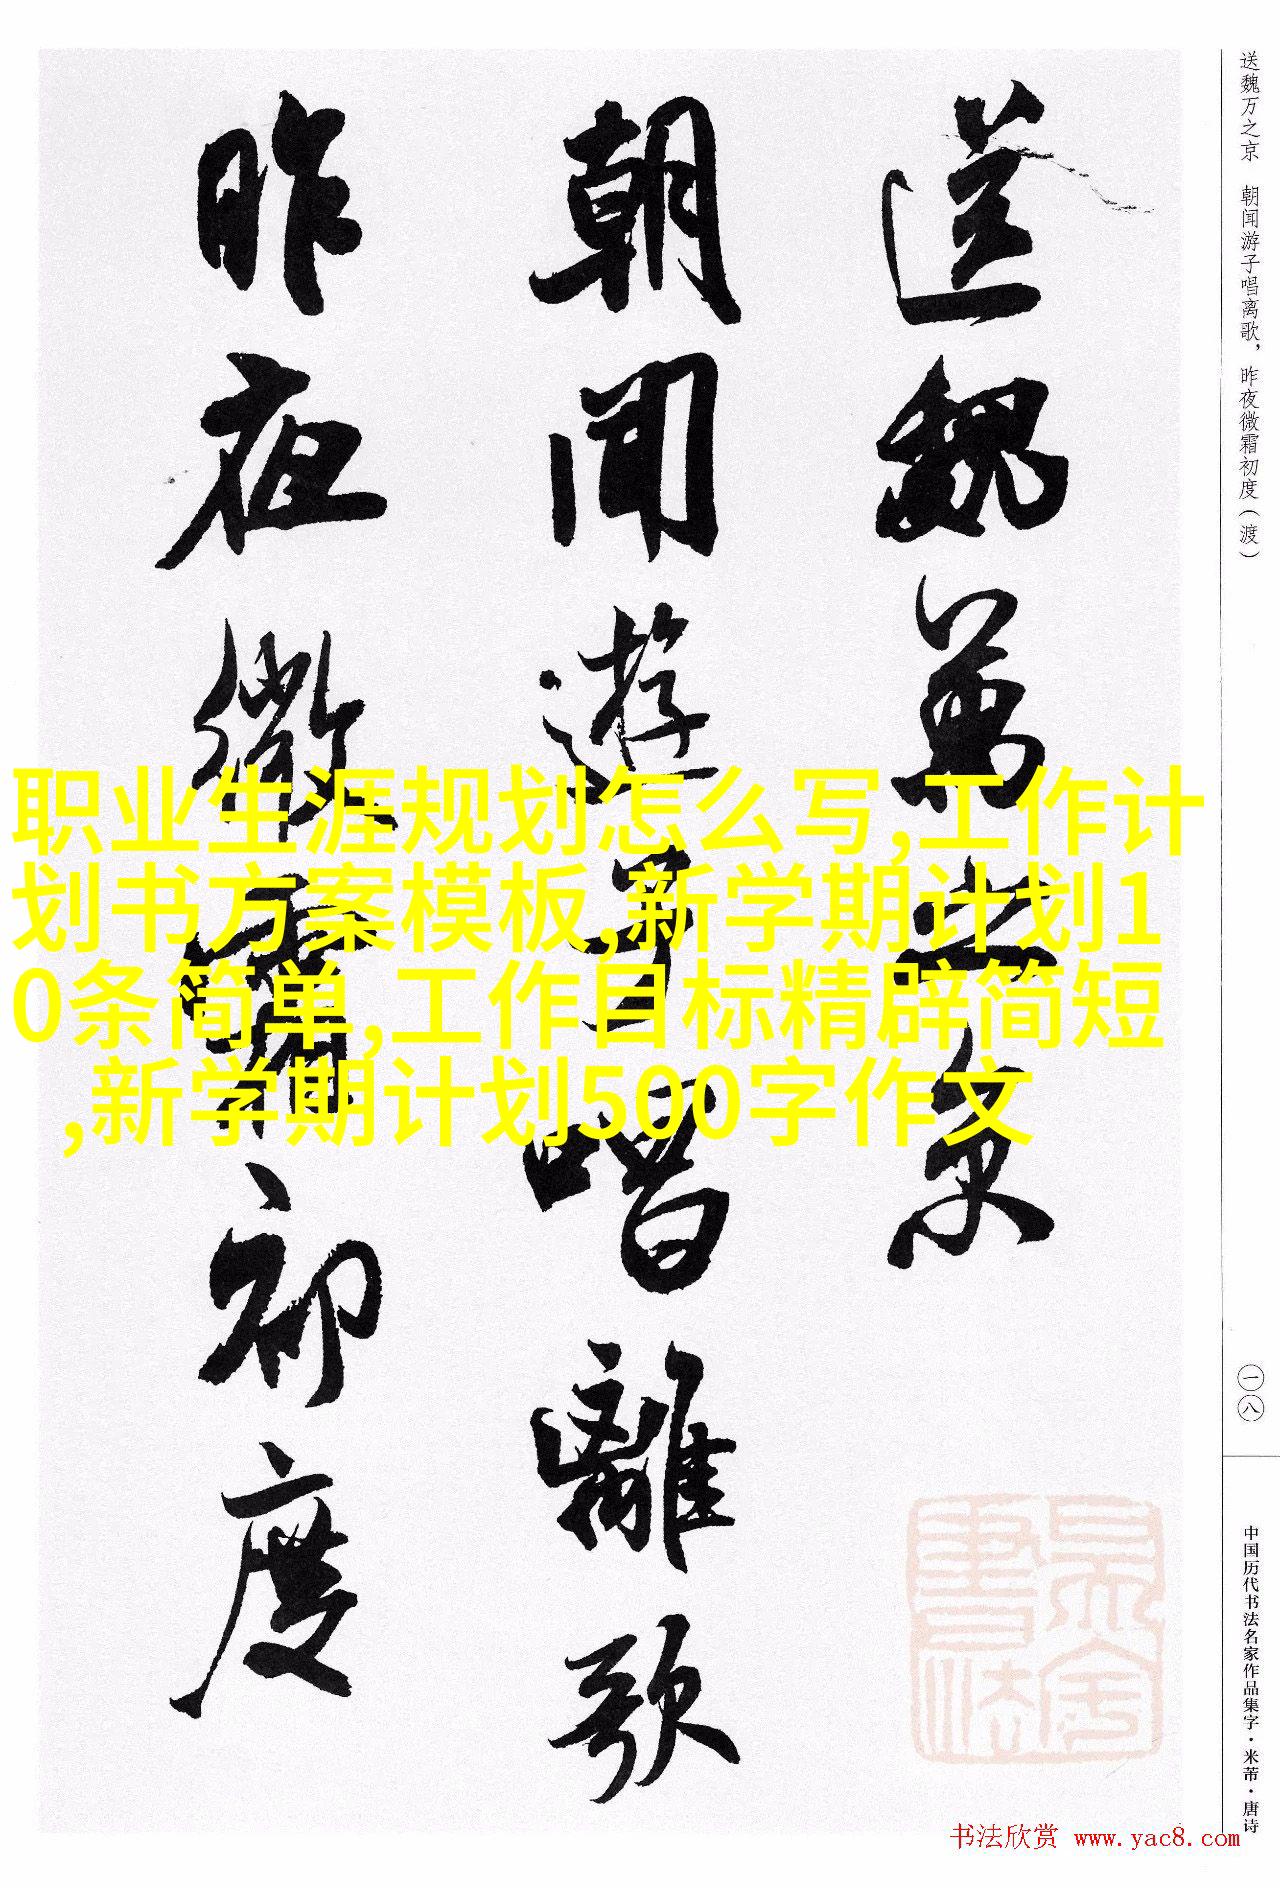 送魏万之京 朝闻游子唱离歌，昨夜微霜初度（渡）
送魏萬之京
朝聞遊子唱離歌
昨夜微霜初度
职业生涯规划怎么写,工作计
划书方案模板,新学期计划1
0条简单,工作目标精辟简短
,新学期计划500字作文
一八
中国历代书法名家作品集字·米芾·唐诗
书法欣赏 www.yac8.com